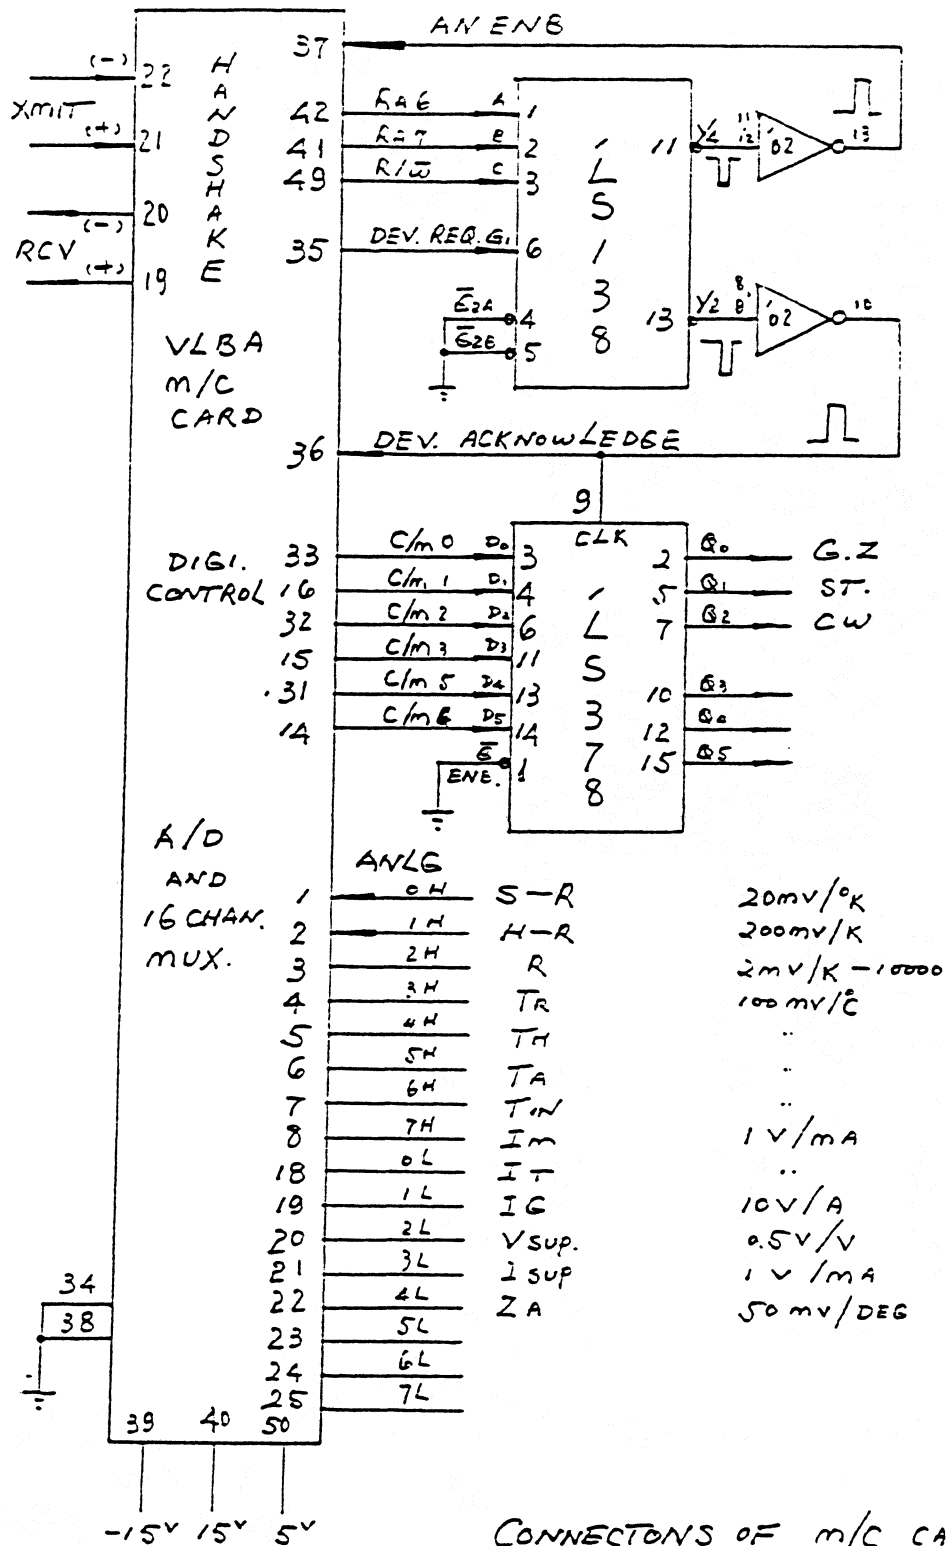 AN ENB
37
(-)
22
XMIT
(+)
21
20
(-)
RCV
(+)
19
HANDSHAKE
VLBA
M/C
CARD
42 RA6 A 1
41 RA7 B 2
49 R/W̅ C 3
35 DEV. REQ. G1 6
E̅2A 4
5
'LS138
11 Y4 11 12 '02 13
13 Y2 8 '02 10
36 DEV. ACKNOWLEDGE
9
CLK
DIGI.
CONTROL
33 C/M 0 D0 3
16 C/M 1 D1 4
32 C/M 2 D2 6
15 C/M 3 D3 11
31 C/M 5 D4 13
14 C/M 6 D5 14
E̅ 1
ENE.
'LS378
2 Q0 G.Z
5 Q1 ST.
7 Q2 CW
10 Q3
12 Q4
15 Q5
A/D
AND
16 CHAN.
MUX.
ANLG
1 0H S-R 20mv/°K
2 1H H-R 200mv/K
3 2H R 2mv/K - 10000
4 3H TR 100mv/°C
5 4H TH "
6 5H TA "
7 6H TIN "
8 7H IM 1V/mA
18 0L IT "
19 1L IG 10V/A
20 2L VSUP. 0.5V/V
21 3L ISUP 1V/mA
22 4L ZA 50mv/DEG
23 5L
24 6L
25 7L
34
38
39 40 50
-15V 15V 5V
CONNECTONS OF M/C CA